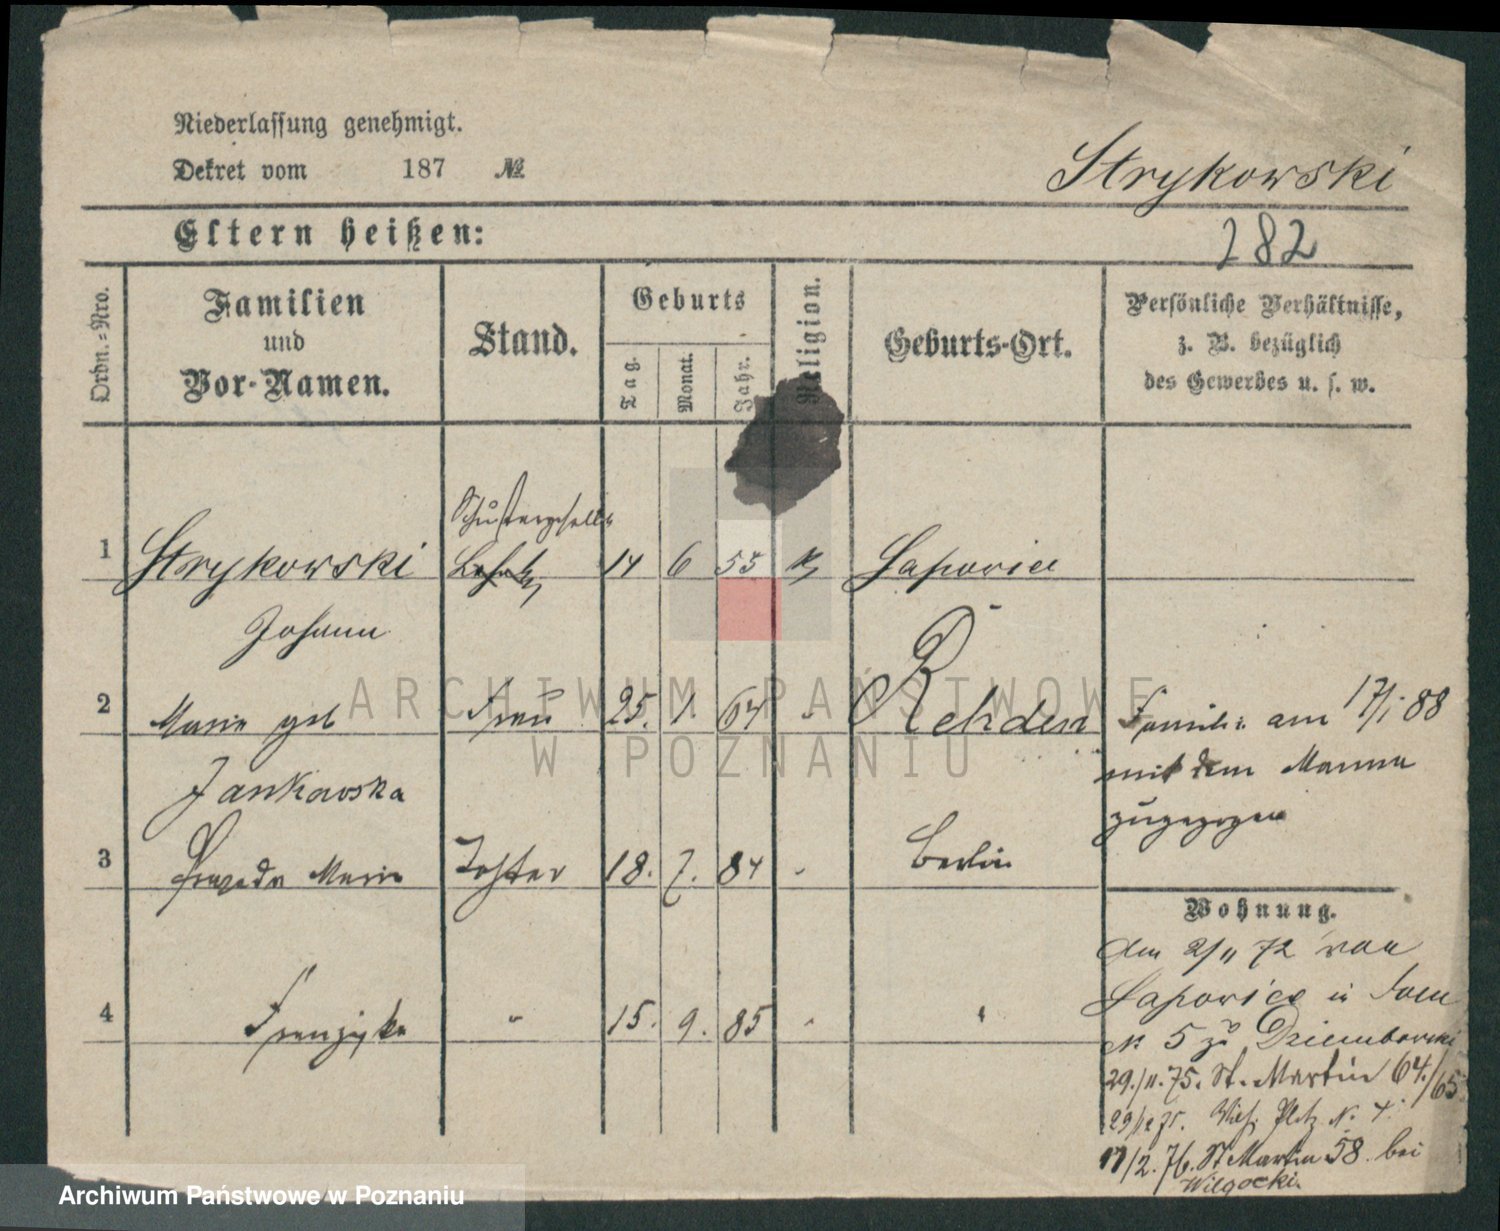 Niederlassung genehmigt.
Dekret vom 187 №
Strykowski
Eltern heißen:
282
Ordn.=Nro.
Familien
und
Vor-Namen.
Stand.
Geburts
Tag.
Monat.
Jahr.
Religion.
Geburts-Ort.
Persönliche Verhältnisse,
z. B. bezüglich
des Gewerbes u. s. w.
Schustergeselle
1 Strykowski 14 6 55 k Lapowice
Johann
2 Marie geb Frau 25. 1. 64 " Rehden
Jankowska
Familie am 17/1 88
mit dem Manne
zugezogen
3 Marie Tochter 18. 7. 84 " Berlin
4 " 15. 9. 85 " "
Wohnung.
Am 2/11 72 von
Lapowice in
№ 5 zu Dziembowski
29./11.75. St. Martin 64./65.
29/12 75. Wilh. Platz N. 4.
17/2.76. St Martin 58 bei
Wilgocki.
ARCHIWUM PAŃSTWOWE
W POZNANIU
Archiwum Państwowe w Poznaniu